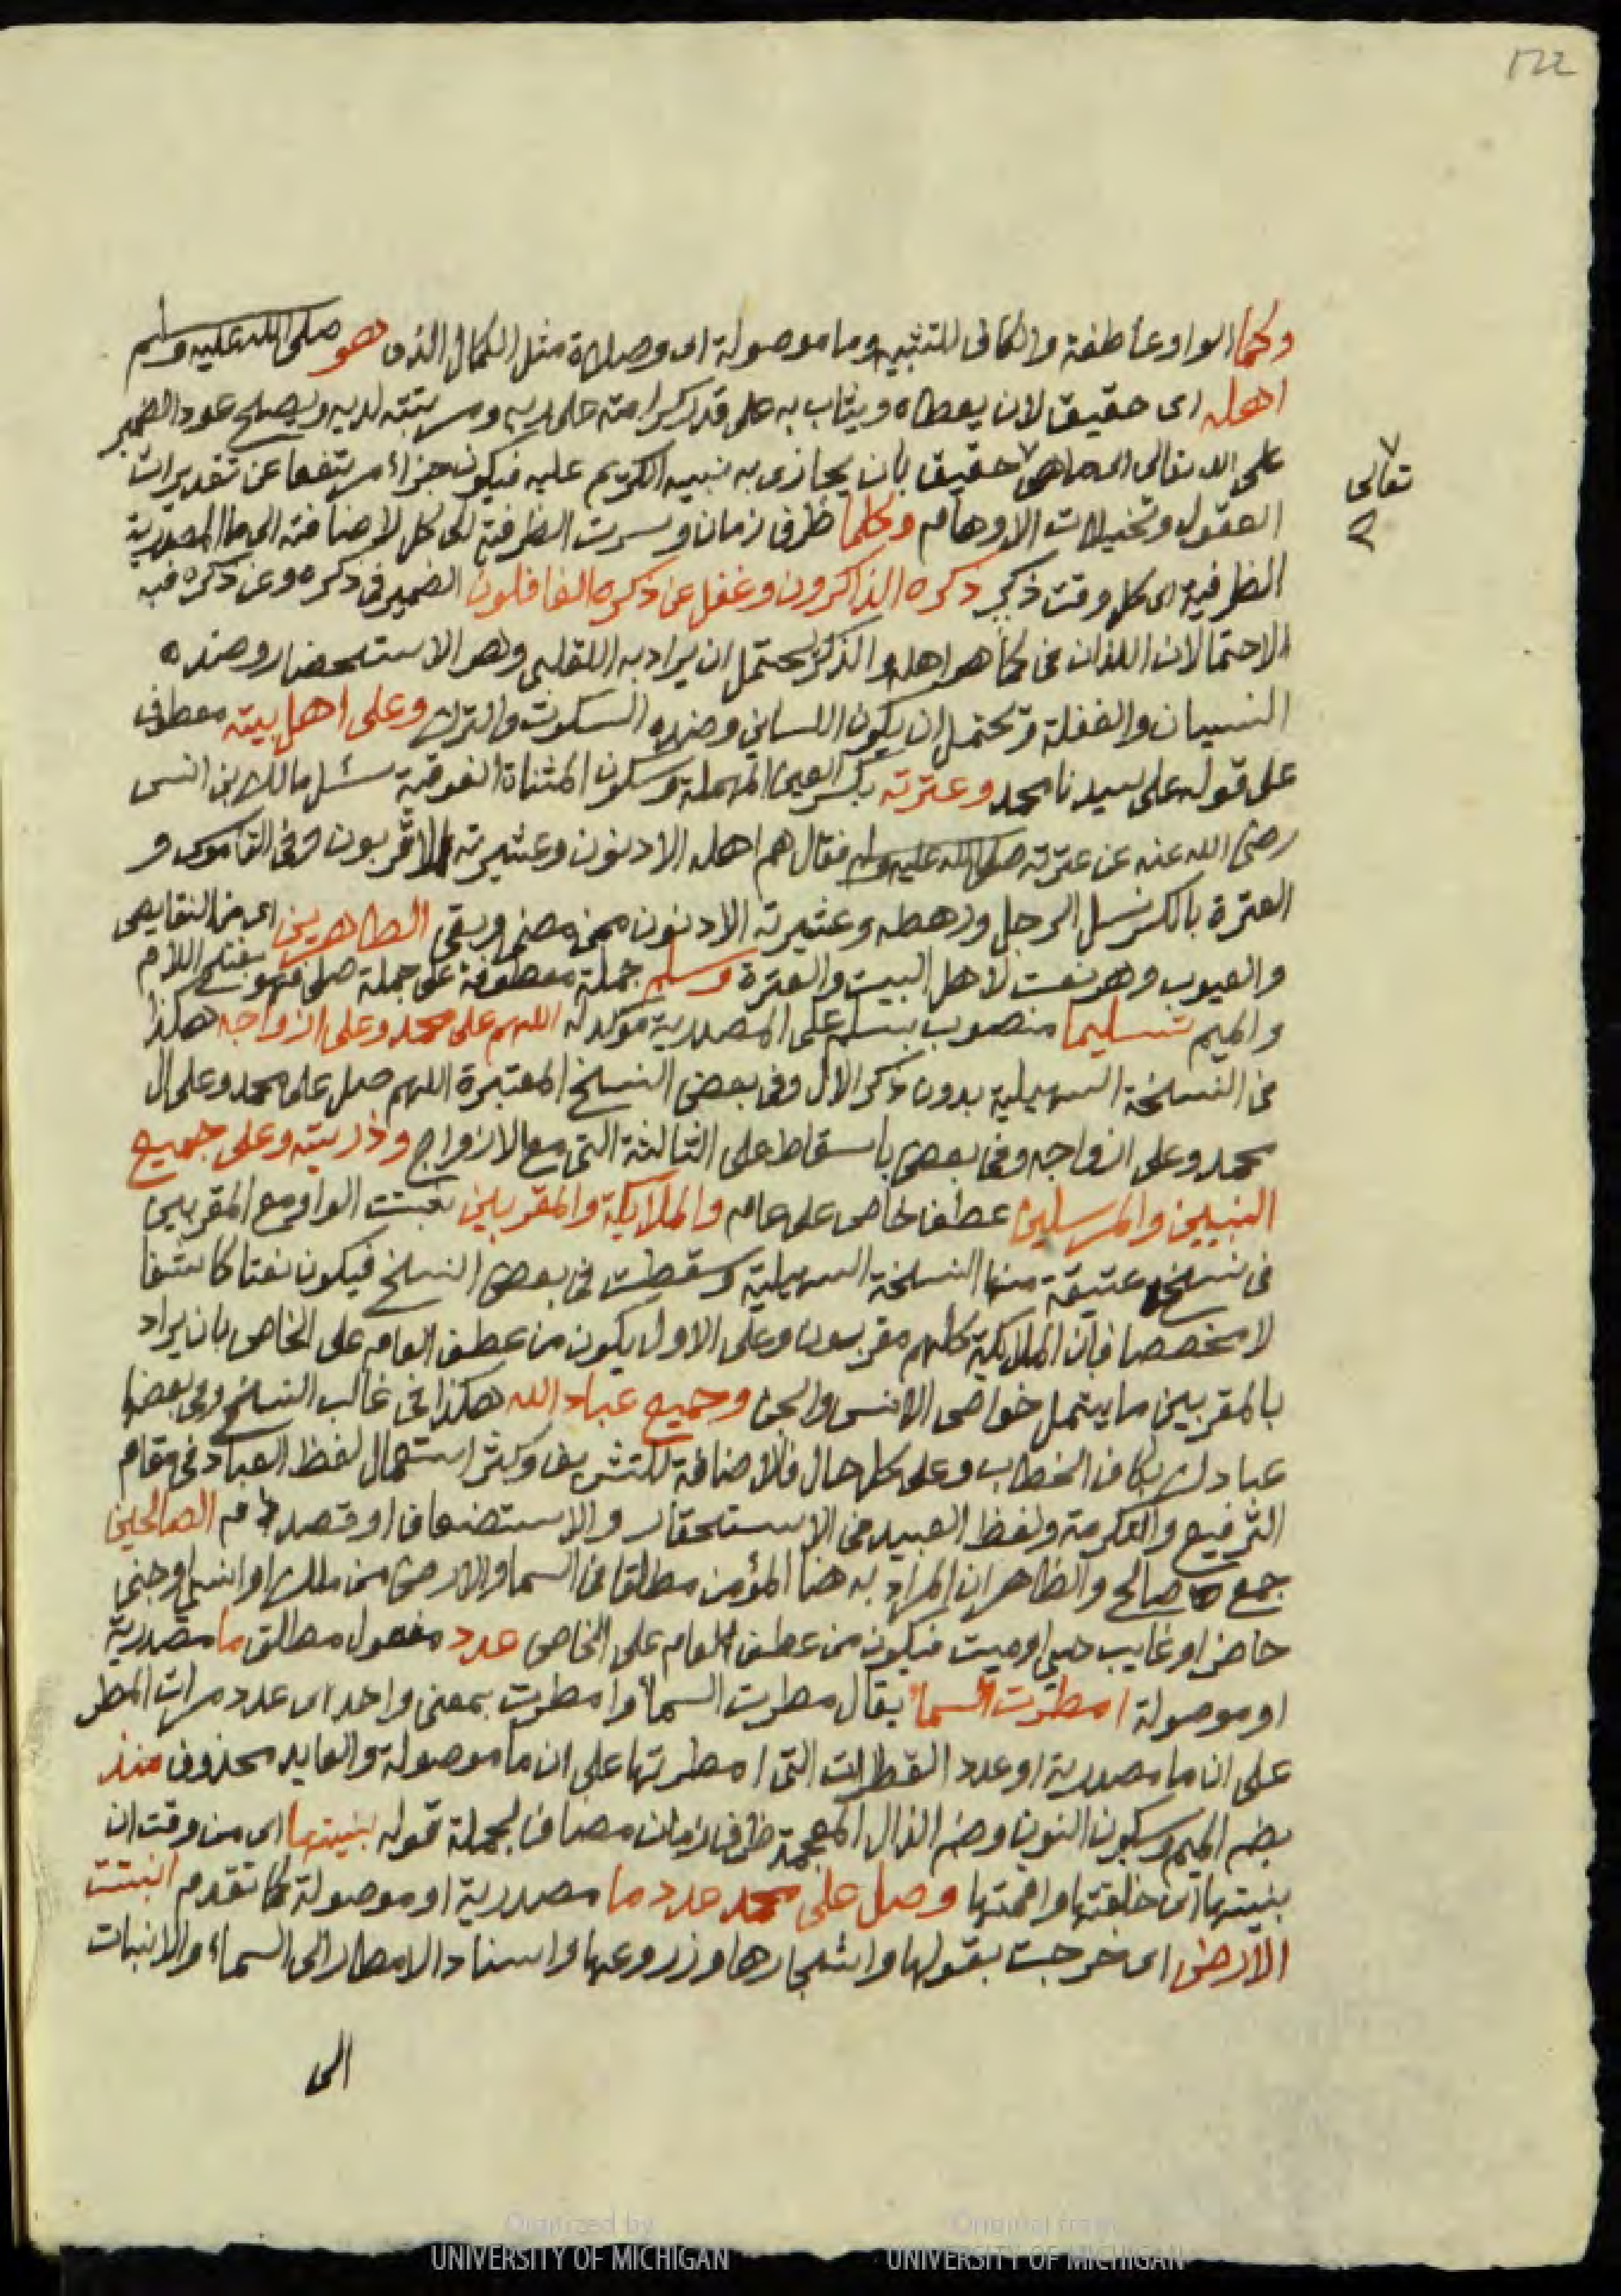 ١٢٢
وكما الواو عاطفة والكاف للتشبيه وما موصولة اى وصلاة مثل الكمال الذى هو صلى الله عليه وسلم
اهله اى حقيق لان يعطاه ويثاب به على قدر كرامته على ربه ومرتبته لديه ويصلح عود الضمير
على الله تعالى اى ما هو حقيق بان يجازى به نبيه الكريم عليه فيكون جزاء مرتفعا عن تقديرات
تعالى
العقول وتخيلات الاوهام وكلما ظرف زمان وسرت الظرفية الى كل لاضافته الى ما المصدرية
الظرفية اى كل وقت ذكر ذكره الذاكرون وغفل عن ذكره الغافلون الضمير فى ذكره وعن ذكره فيه
الاحتمالان اللذان فى كما هو اهله والذكر يحتمل ان يراد به القلبى وهو الاستحضار وضده
النسيان والغفلة ويحتمل ان يكون اللسانى وضده السكوت والترك وعلى اهل بيته معطوف
على قوله على سيدنا محمد وعترته بكسر العين المهملة وسكون المثناة الفوقية سئل مالك بن انس
رضى الله عنه عن عترته صلى الله عليه وسلم فقال هم اهله الادنون وعشيرته الاقربون وفى القاموس و
العترة بالكسر نسل الرجل ورهطه وعشيرته الادنون ممن مضى وبقى الطاهرين اى من النقايص
والعيوب وهو نعت لاهل البيت والعترة وسلم جملة معطوفة على جملة صلى فهو بفتح اللام
والميم تسليما منصوب بسلم على المصدرية مؤكد له اللهم على محمد وعلى ازواجه هكذا
فى النسخة السهيلية بدون ذكر الال وفى بعض النسخ المعتبرة اللهم صل على محمد وعلى ال
محمد وعلى ازواجه وفى بعض باسقاط على الثالثة التى مع الازواج وذريته وعلى جميع
النبيين والمرسلين عطف خاص على عام والملايكة والمقربين تثبتت الواو مع المقربين
فى نسخ عتيقة منها النسخة السهيلية وسقطت فى بعض النسخ فيكون نعتا كاشفا
لا مخصصا فان الملايكة كلهم مقربون وعلى الاول يكون من عطف العام على الخاص بان يراد
بالمقربين ما يشمل خواص الانس والجن وجميع عباد الله هكذا فى غالب النسخ وفى بعضها
عبادك بكاف الخطاب وعلى كل حال فالاضافة للتشريف وكثر استعمال لفظ العباد فى مقام
الترفيع والتكرمة ولفظ العبيد فى الاستحقار والاستضعاف او قصد ذم الصالحين
جمع صالح والظاهر ان المراد به هنا المؤمن مطلقا فى السما والارض من ملك او انسى او جنى
حاضر او غايب حى او ميت فيكون من عطف العام على الخاص عدد مفعول مطلق ما مصدرية
او موصولة امطرت السما يقال مطرت السما وامطرت بمعنى واحد اى عدد مرات المطر
على ان ما مصدرية او عدد القطرات التى امطرتها على ان ما موصولة والعايد محذوف منذ
بضم الميم وسكون النون وضم الذال المعجمة ظرف زمان مضاف لجملة قوله بنيتها اى من وقت ان
بنيتها اى خلقتها واقمتها وصل على محمد عدد ما مصدرية او موصولة كما تقدم انبتت
الارض اى خرجت بقولها واشجارها وزروعها واسناد الامطار الى السماء والانبات
الى
Digitized by
UNIVERSITY OF MICHIGAN
Original from
UNIVERSITY OF MICHIGAN